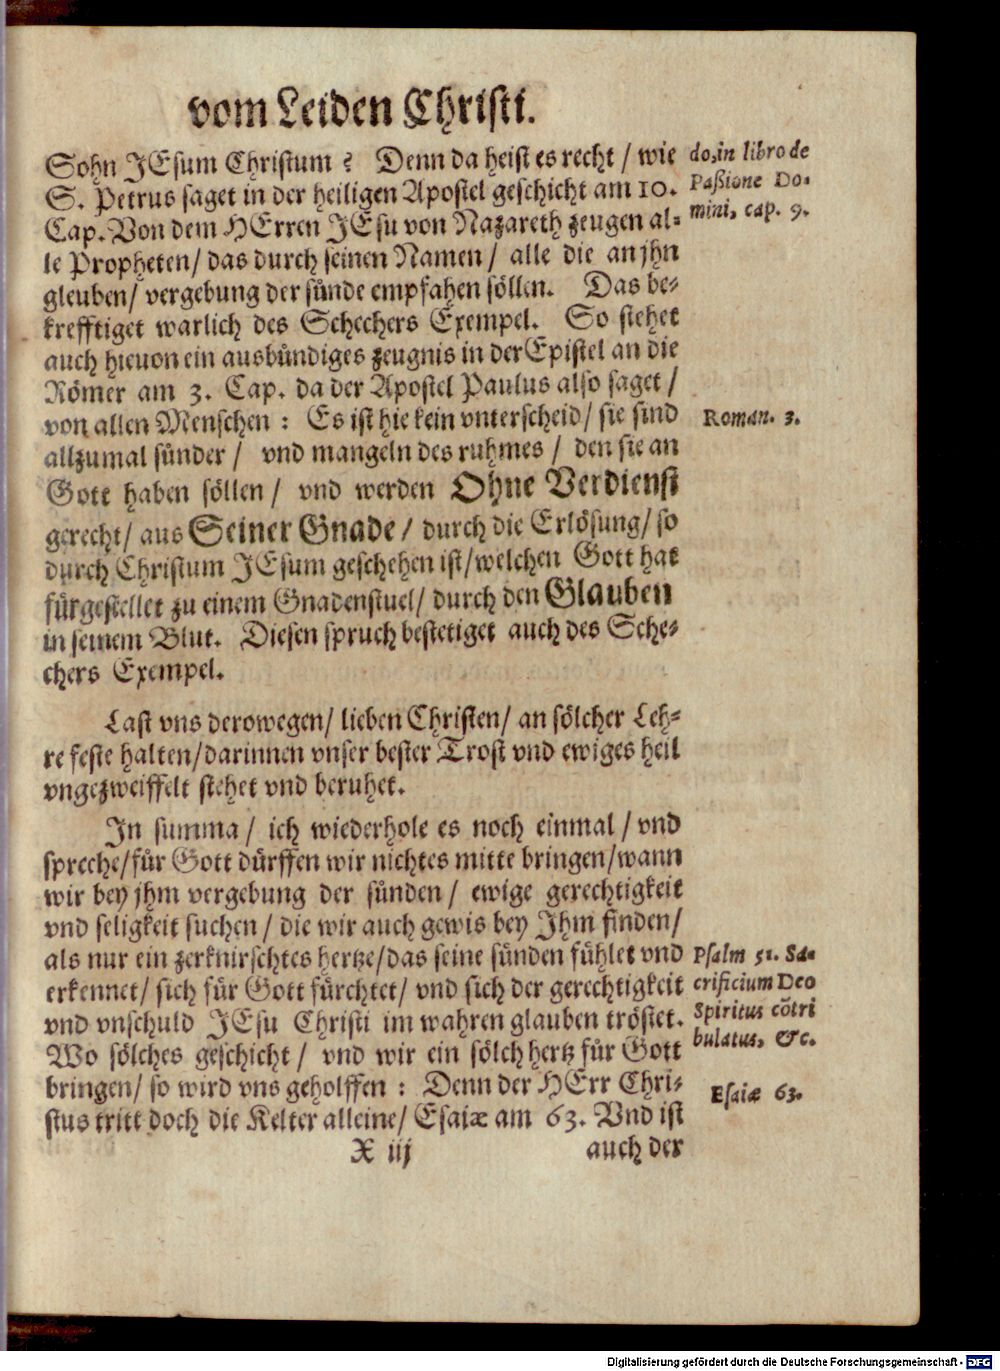 vom Leiden Christi.
Sohn JEsum Christum? Denn da heist es recht / wie
S. Petrus saget in der heiligen Apostel geschicht am 10.
Cap. Von dem HErren JEsu von Nazareth zeugen al-
le Propheten / das durch seinen Namen / alle die an jhn
gleuben / vergebung der sünde empfahen söllen. Das be-
krefftiget warlich des Schechers Exempel. So stehet
auch hieuon ein ausbündiges zeugnis in der Epistel an die
Römer am 3. Cap. da der Apostel Paulus also saget /
von allen Menschen : Es ist hie kein vnterscheid / sie sind
allzumal sünder / vnd mangeln des ruhmes / den sie an
Gott haben söllen / vnd werden Ohne Verdienst
gerecht / aus Seiner Gnade / durch die Erlösung / so
durch Christum JEsum geschehen ist / welchen Gott hat
fürgestellet zu einem Gnadenstuel / durch den Glauben
in seinem Blut. Diesen spruch bestetiget auch des Sche-
chers Exempel.
Last vns derowegen / lieben Christen / an sölcher Leh-
re feste halten / darinnen vnser bester Trost vnd ewiges heil
vngezweiffelt stehet vnd beruhet.
In summa / ich wiederhole es noch einmal / vnd
spreche / für Gott dürffen wir nichtes mitte bringen / wann
wir bey jhm vergebung der sünden / ewige gerechtigkeit
vnd seligkeit suchen / die wir auch gewis bey Ihm finden /
als nur ein zerknirschtes hertze / das seine sünden fühlet vnd
erkennet / sich für Gott fürchtet / vnd sich der gerechtigkeit
vnd vnschuld JEsu Christi im wahren glauben tröstet.
Wo sölches geschicht / vnd wir ein sölch hertz für Gott
bringen / so wird vns geholffen : Denn der HErr Chri-
stus tritt doch die Kelter alleine / Esaiæ am 63. Vnd ist
X iij
auch der
do, in libro de
Paßione Do-
mini, cap. 9.
Roman. 3.
Psalm 51. Sa-
crificium Deo
Spiritus cōtri
bulatus, &c.
Esaiæ 63.
Digitalisierung gefördert durch die Deutsche Forschungsgemeinschaft - DFG